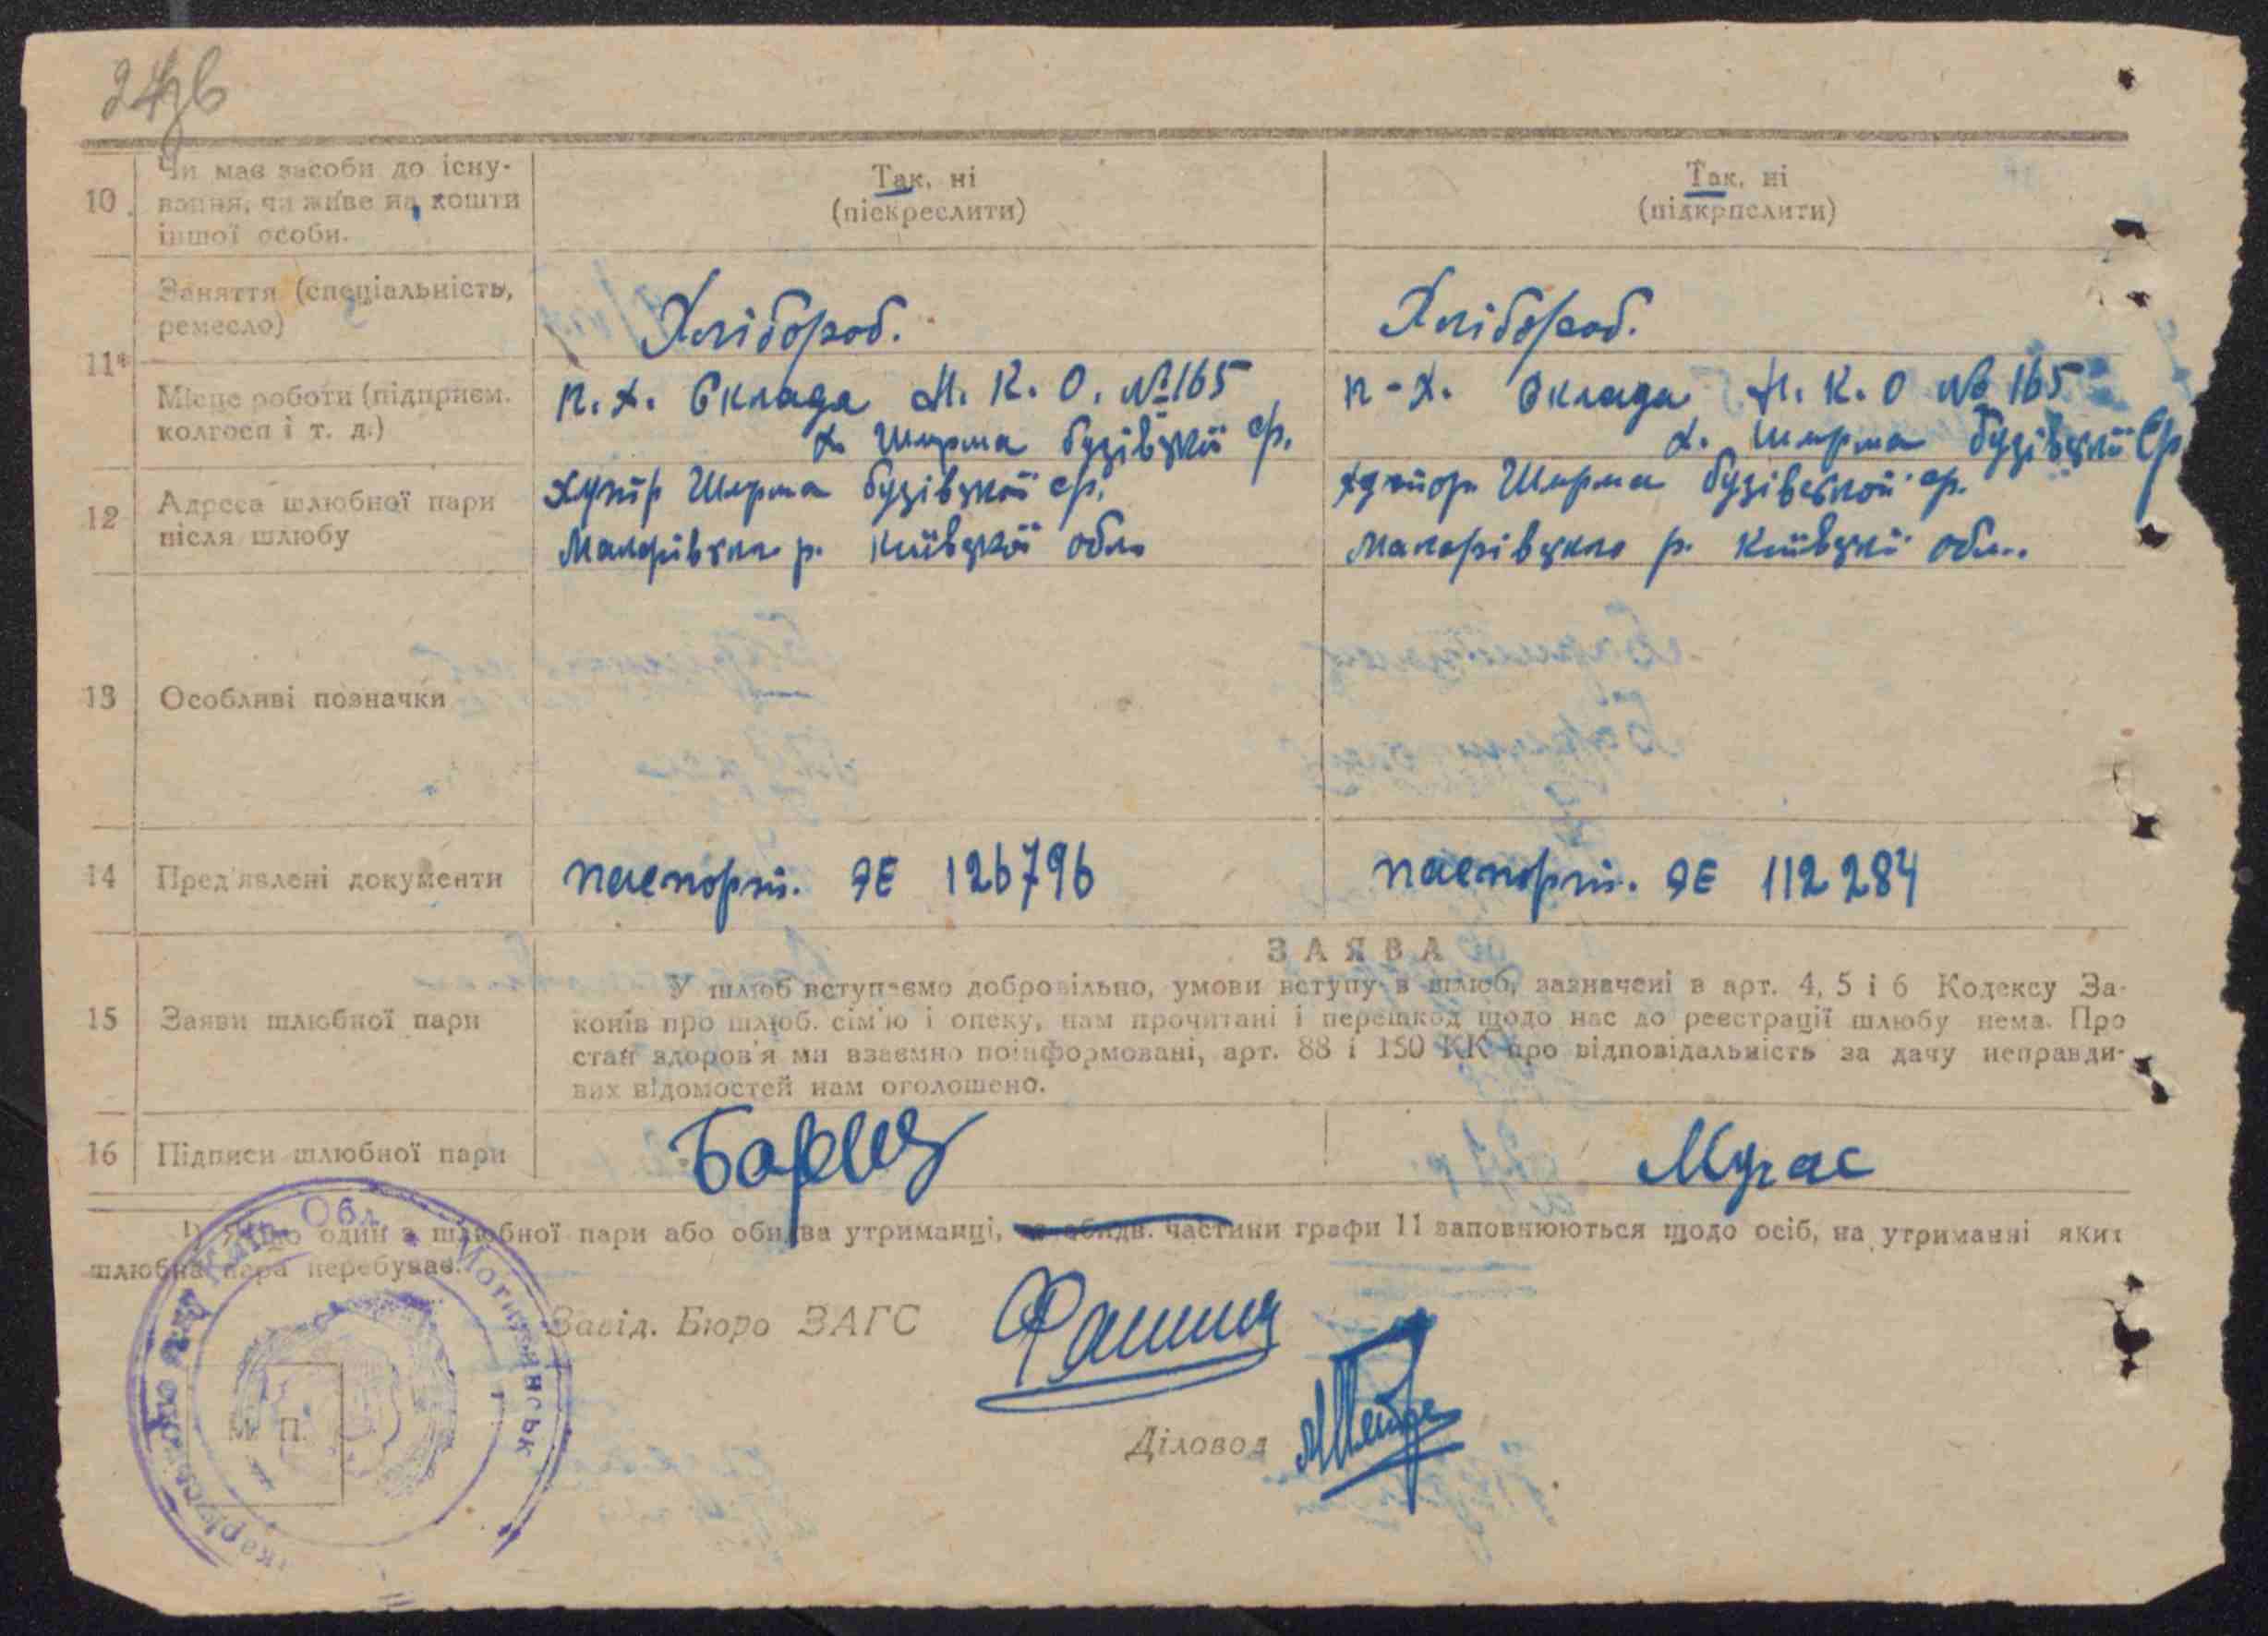 24зв
10. Чи має засоби до існу- Так, ні Так, ні
вання, чи живе на кошти (піскреслити) (підкрпслити)
іншої особи.
Заняття (спеціальність, Хлібороб. Хлібороб.
ремесло)
11*
Місце роботи (підприєм. п.х. Склада Н. К. О. №165 п-х. Склада Н. К. О № 165
колгосп і т. д.) х. Ширма бузівської ср. х. Ширма бузівської ср
12 Адреса шлюбної пари хутір Ширма бузівської ср. хутор Ширма бузівської ср.
після шлюбу Макарівськ р. київської обл. Макарівського р. київської обл.
13 Особливі позначки
14 Пред'явлені документи паспорт. ЯЕ 126796 паспорт. ЯЕ 112284
ЗАЯВА
15 Заяви шлюбної пари У шлюб вступаємо добровільно, умови вступу в шлюб, зазначені в арт. 4, 5 і 6 Кодексу За-
конів про шлюб. сім'ю і опеку, нам прочитані і перешкод щодо нас до реєстрації шлюбу нема. Про
стан здоров'я ми взаємно поінформовані, арт. 88 і 150 КК про відповідальність за дачу неправди-
вих відомостей нам оголошено.
16 Підписи шлюбної пари
1) Якщо один з шлюбної пари або обидва утриманці, то обидв. частини графи 11 заповнюються щодо осіб, на утриманні яких
шлюбна пара перебуває.
Завід. Бюро ЗАГС
М. П.
Діловод